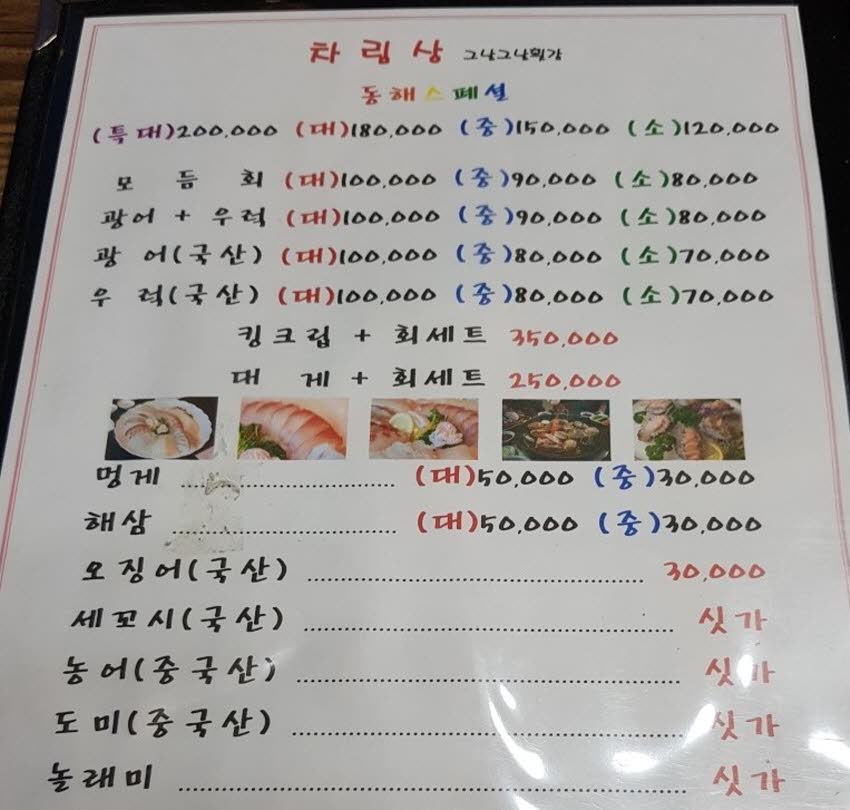 차림상 그날그날횟감
동해스페셜
(특대)200,000 (대)180,000 (중)150,000 (소)120,000
모듬회 (대)100,000 (중)90,000 (소)80,000
광어 + 우럭 (대)100,000 (중)90,000 (소)80,000
광어(국산) (대)100,000 (중)80,000 (소)70,000
우럭(국산) (대)100,000 (중)80,000 (소)70,000
킹크럽 + 회세트 350,000
대게 + 회세트 250,000
멍게 (대)50,000 (중)30,000
해삼 (대)50,000 (중)30,000
오징어(국산) 30,000
세꼬시(국산) 싯가
농어(중국산) 싯가
도미(중국산) 싯가
놀래미 싯가